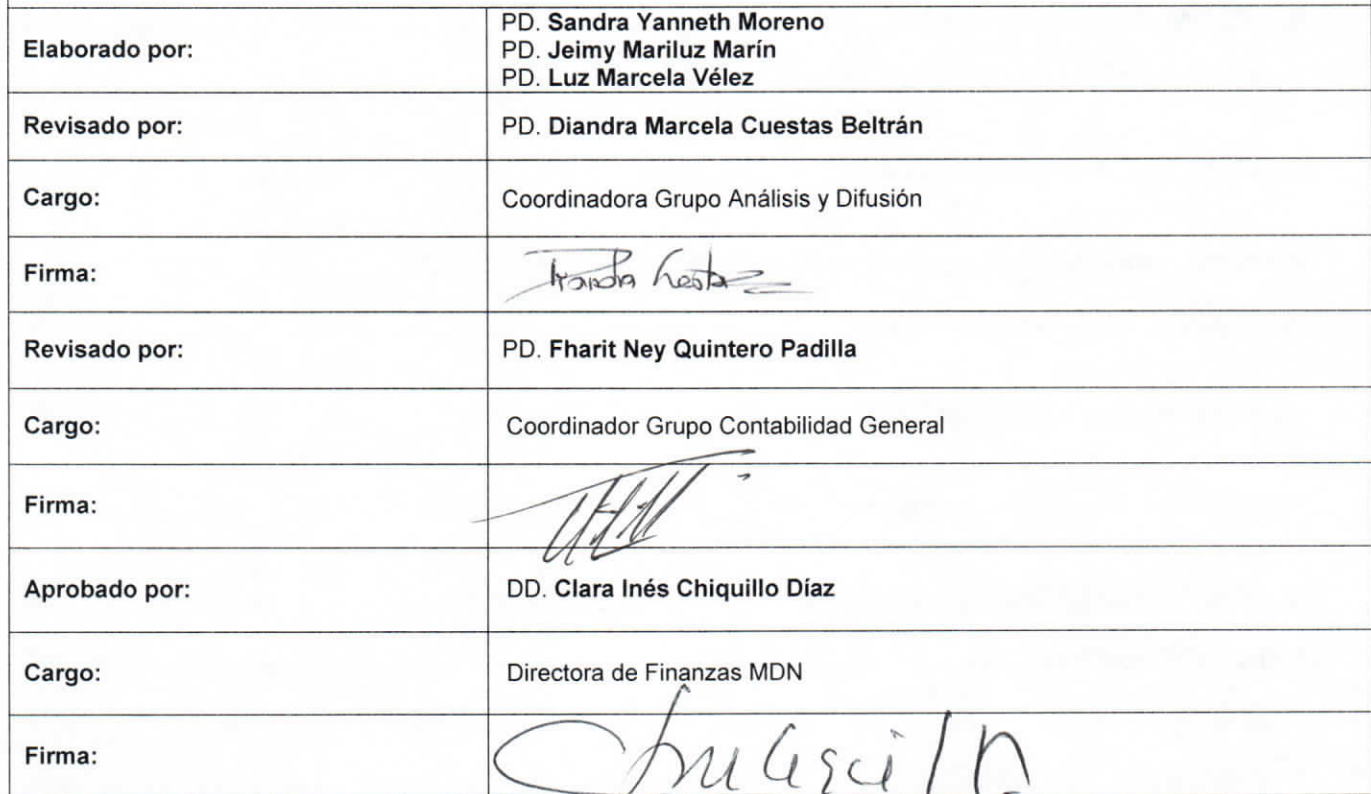 Elaborado por:
PD. Sandra Yanneth Moreno
PD. Jeimy Mariluz Marín
PD. Luz Marcela Vélez
Revisado por:
PD. Diandra Marcela Cuestas Beltrán
Cargo:
Coordinadora Grupo Análisis y Difusión
Firma:
Revisado por:
PD. Fharit Ney Quintero Padilla
Cargo:
Coordinador Grupo Contabilidad General
Firma:
Aprobado por:
DD. Clara Inés Chiquillo Díaz
Cargo:
Directora de Finanzas MDN
Firma: